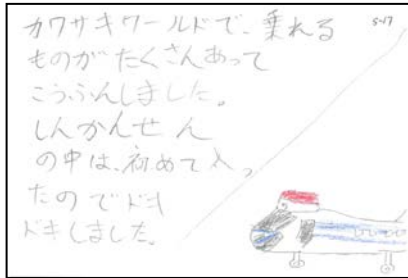 カワサキワールドで、乗れる
ものがたくさんあって
こうふんしました。
しんかんせん
の中は、初めて入っ
たのでドキ
ドキしました。
5-17